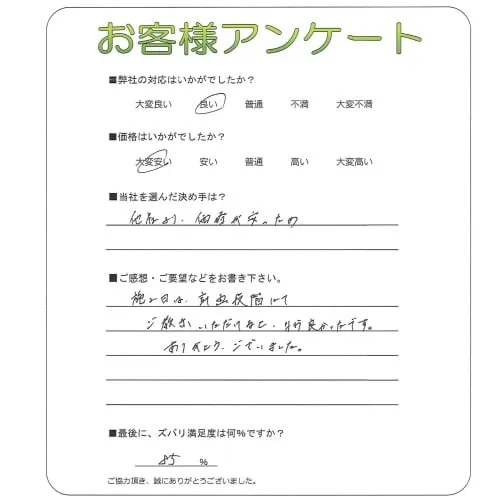 お客様アンケート
■弊社の対応はいかがでしたか？
大変良い 良い 普通 不満 大変不満
■価格はいかがでしたか？
大変安い 安い 普通 高い 大変高い
■当社を選んだ決め手は？
他社より、価格が安いため
■ご感想・ご要望などをお書き下さい。
施工日は、計画段階にて
ご教示いただけると、
良かったです。
ありがとうございました。
■最後に、ズバリ満足度は何%ですか？
85 %
ご協力頂き、誠にありがとうございました。